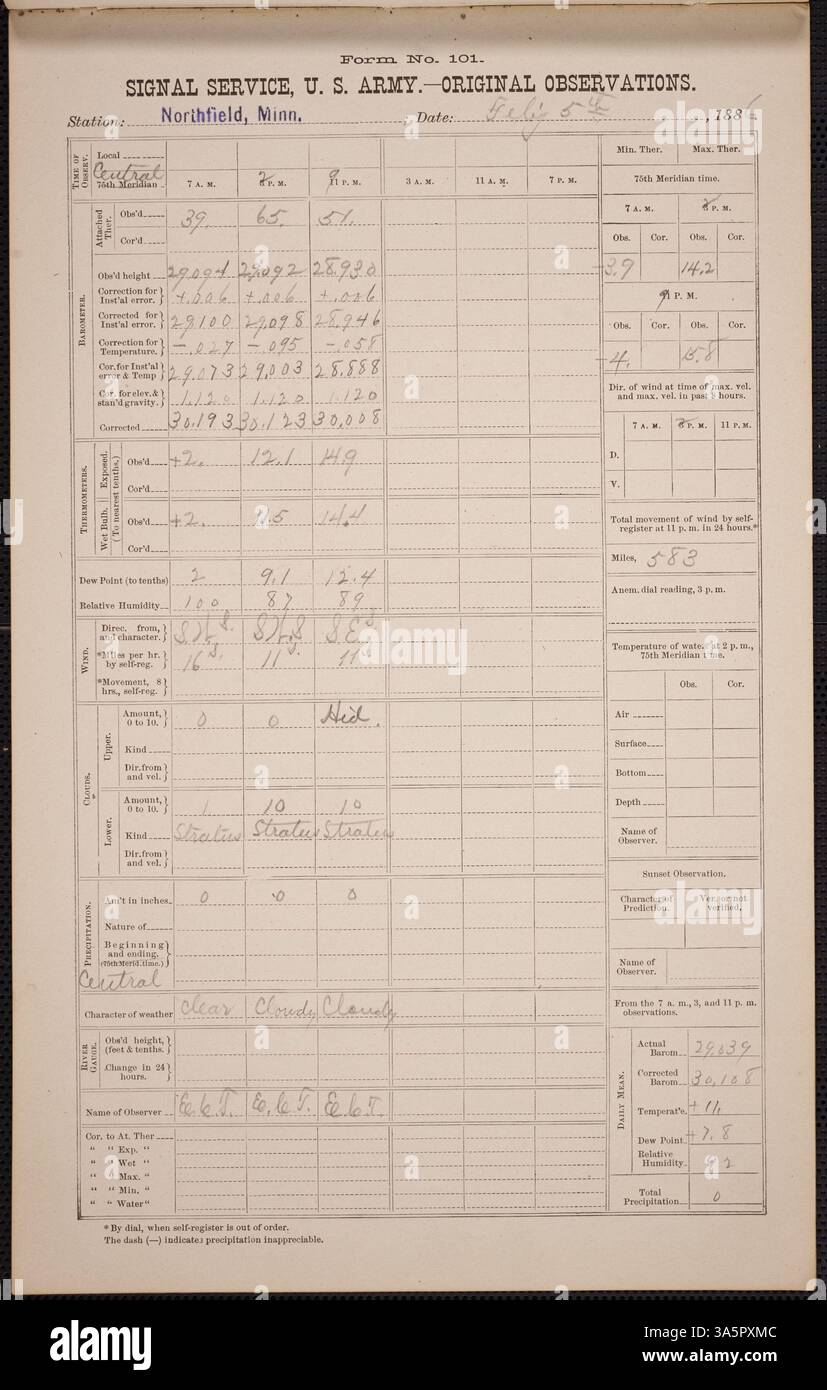 Form No. 101.
SIGNAL SERVICE, U. S. ARMY.—ORIGINAL OBSERVATIONS.
Station: Northfield, Minn. Date: Feb'y 5th, 1886
TIME OF OBSERV.
Local
Central
75th Meridian 7 A. M. 2 P. M. 9 P. M. 3 A. M. 11 A. M. 7 P. M.
BAROMETER.
Attached Ther.
Obs'd 39. 65. 51.
Cor'd
Obs'd height 29.094 29.092 28.930
Correction for Inst'al error. +.006 +.006 +.006
Corrected for Inst'al error. 29.100 29.098 28.946
Correction for Temperature. -.027 -.095 -.058
Cor. for Inst'al error & Temp 29.073 29.003 28.888
Cor. for elev. & stan'd gravity. 1.120 1.120 1.120
Corrected 30.193 30.123 30.008
THERMOMETERS.
Exposed. Wet Bulb. (To nearest tenths.)
Obs'd +2. 12.1 14.9
Cor'd
Obs'd +2. 11.5 14.4
Cor'd
Dew Point (to tenths) 2 9.1 12.4
Relative Humidity 100 87 89
WIND.
Direc. from, and character. S.W. S. S.W.S S.E. S.
*Miles per hr. by self-reg. 16 11 11
*Movement, 8 hrs., self-reg.
CLOUDS.
Upper.
Amount, 0 to 10. 0 0 Hid.
Kind
Dir. from and vel.
Lower.
Amount, 0 to 10. 1 10 10
Kind Stratus Stratus Stratus
Dir. from and vel.
PRECIPITATION.
Am't in inches 0 0 0
Nature of
Beginning and ending.
(75th Merid. time.)
Central
Character of weather Clear Cloudy Cloudy
RIVER GAUGE.
Obs'd height, (feet & tenths.
Change in 24 hours.
Name of Observer E.C.T. E.C.T. E.C.T.
Cor. to At. Ther
" " Exp. "
" " Wet "
" " Max. "
" " Min. "
" " Water"
* By dial, when self-register is out of order.
The dash (—) indicates precipitation inappreciable.
Min. Ther. Max. Ther.
75th Meridian time.
7 A. M. P. M.
Obs. Cor. Obs. Cor.
3.9 14.2
9 P. M.
Obs. Cor. Obs. Cor.
4. 15.8
Dir. of wind at time of max. vel. and max. vel. in past 8 hours.
7 A. M. P. M. 11 P. M.
D.
V.
Total movement of wind by self-register at 11 p. m. in 24 hours.*
Miles, 583
Anem. dial reading, 3 p. m.
Temperature of water at 2 p. m., 75th Meridian time.
Obs. Cor.
Air
Surface
Bottom
Depth
Name of Observer.
Sunset Observation.
Character of Prediction. Ver. or not verified.
Name of Observer.
From the 7 a. m., 3, and 11 p. m. observations.
DAILY MEAN.
Actual Barom. 29.039
Corrected Barom. 30.108
Temperat'e. +11.
Dew Point +7.8
Relative Humidity 92
Total Precipitation 0
alamy
a
alamy
Image ID: 3A5PXMC
www.alamy.com